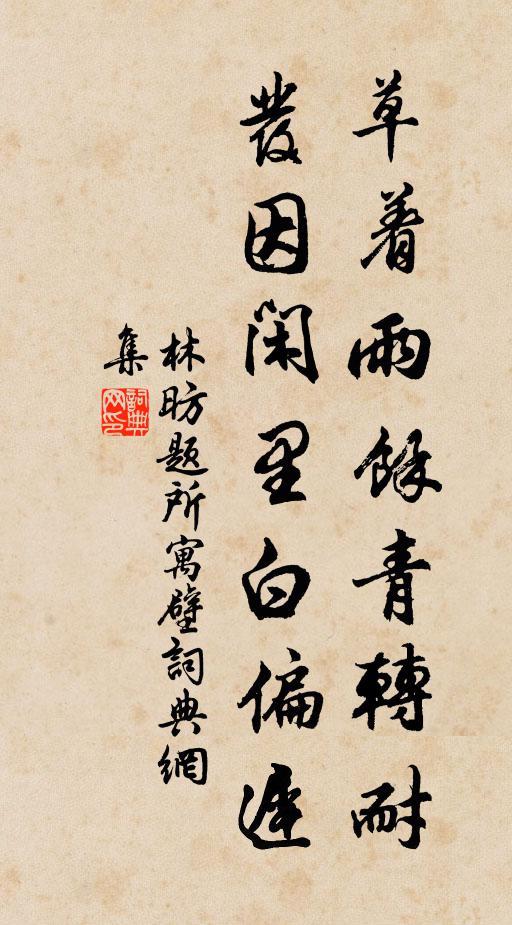 草着雨餘青轉耐
發因閑里白偏遲
林昉題所寓壁詞典網
集
詞典
网印